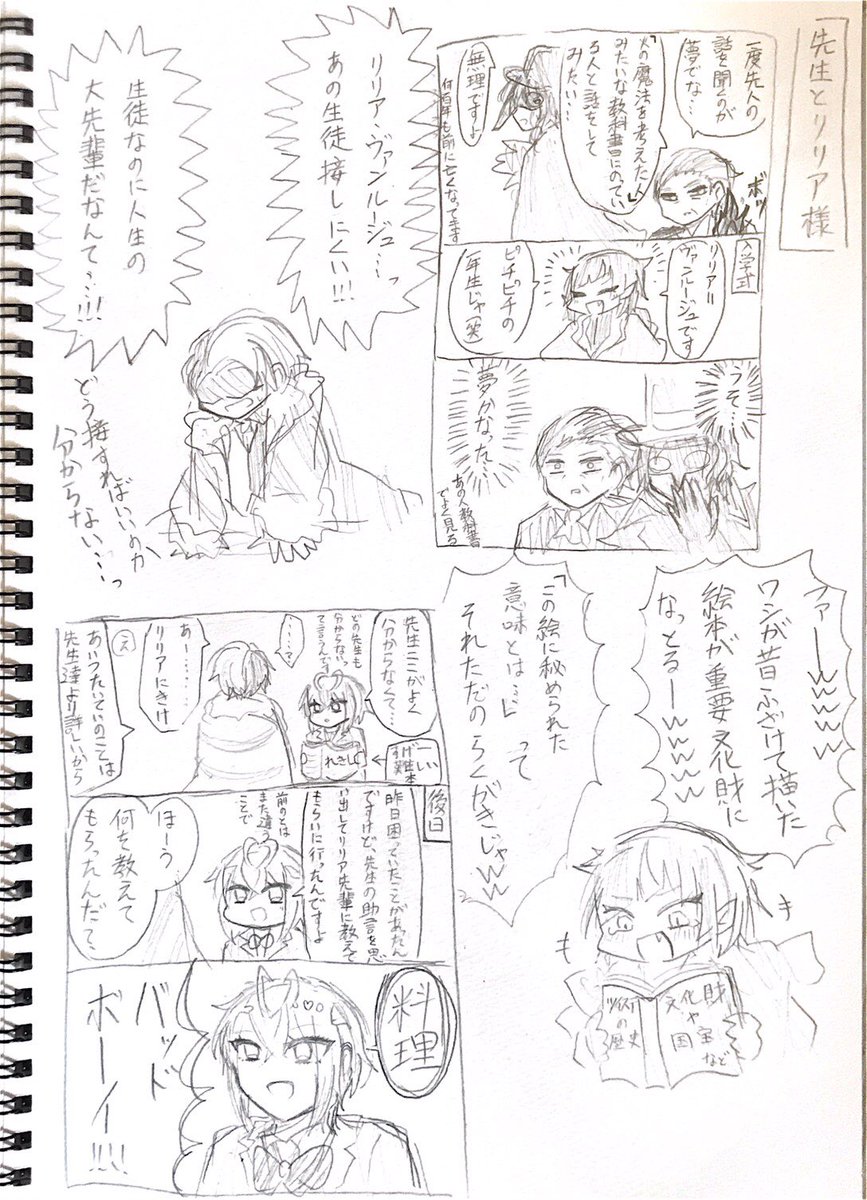 先生とリリア様
一度先人の
話を聞くのが
夢でな…
「火の魔法を考えた人」
みたいな教科書にのてい
る人と話をして
みたい…
無理ですよ
何百年も前に亡くなってます
ボソッ
入学式
リリア=
ヴァンルージュです
ピチピチの
1年生じゃ(笑)
うそ…
夢かなった…
あの人教科書
でよく見る
リリア・ヴァンルージュ…っ
あの生徒接しにくい!!!
生徒なのに人生の
大先輩だなんて…!!!
どう接すればいいのか
分からない…っ
ファーwwww
ワシが昔ふざけて描いた
絵本が重要文化財に
なっとるーwwwww
「この絵に秘められた
意味とは…」って
それただのらくがきじゃww
ツイステ
の
歴史
文化財
や
国宝
など
先生ここがよく
分からなくて…
どの先生も
分からないって
て言うんです
……?
あー……
リリアにきけ
え
あいつたいていのことは
先生達より詳しいから
れきし
すげーい
難本
後日
昨日困っていたことがあったん
ですけど、先生の助言を思
い出してリリア先輩に教えて
もらいに行ったんですよ
前のとは
また違う
ことで
ほーう
何を教えて
もらったんだ?
料理
バッド
ボーイ!!!!